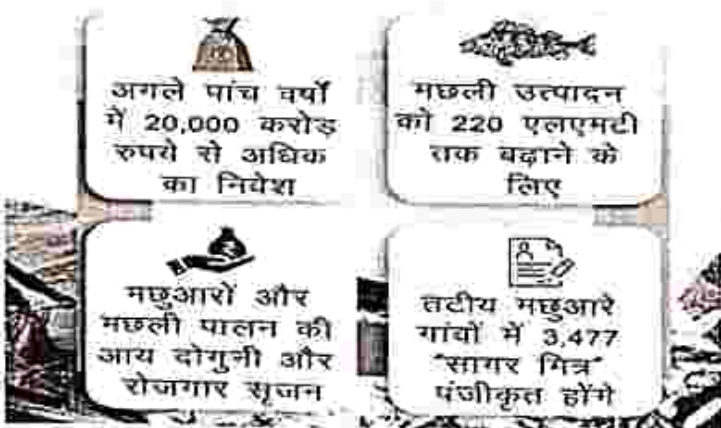 अगले पांच वर्षों
में 20,000 करोड़
रुपये से अधिक
का निवेश
मछली उत्पादन
को 220 एलएमटी
तक बढ़ाने के
लिए
मछुआरों और
मछली पालन की
आय दोगुनी और
रोजगार सृजन
तटीय मछुआरे
गांवों में 3,477
"सागर मित्र"
पंजीकृत होंगे